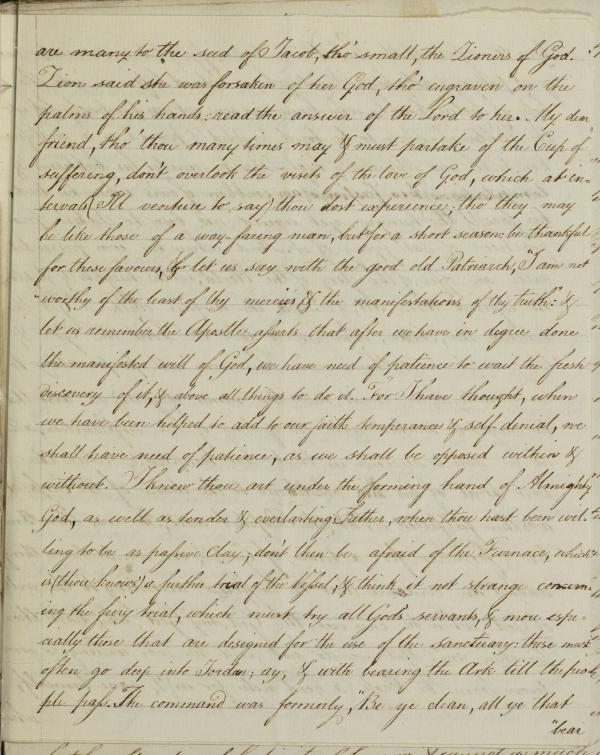 are many to the seed of Jacob, tho' small, the Zioners of God.
Zion said she was forsaken of her God, tho' engraven on the
palms of his hands: read the answer of the Lord to her. My dear
friend, tho' thou many times may & must partake of the Cup of
suffering, don't overlook the visits of the love of God, which at in-
tervals (I'll venture to say) thou dost experience; tho' they may
be like those of a way-faring man, but for a short season: be thankful
for these favours, & let us say with the good old Patriarch, "I am not
"worthy of the least of thy mercies, & the manifestations of thy truth": &
let us remember the Apostle asserts that after we have in degree done
the manifested will of God, we have need of patience to wait the fresh
discovery of it, & above all things to do it. For I have thought, when
we have been helped to add to our faith temperance & self-denial, we
shall have need of patience, as we shall be opposed within &
without. I know thou art under the forming hand of Almighty
God, as well as tender & everlasting Father, when thou hast been wil-
ling to be as passive clay; don't then be afraid of the Furnace, which
is (thou knows) a further trial of the Vessel, & think it not strange concern-
ing the fiery trial, which must try all God's servants, & more espe-
cially those that are designed for the use of the sanctuary: these must
often go deep into Jordan; ay, & with bearing the Ark till the peo-
ple pass. The command was formerly, "Be ye clean, all ye that
"bear